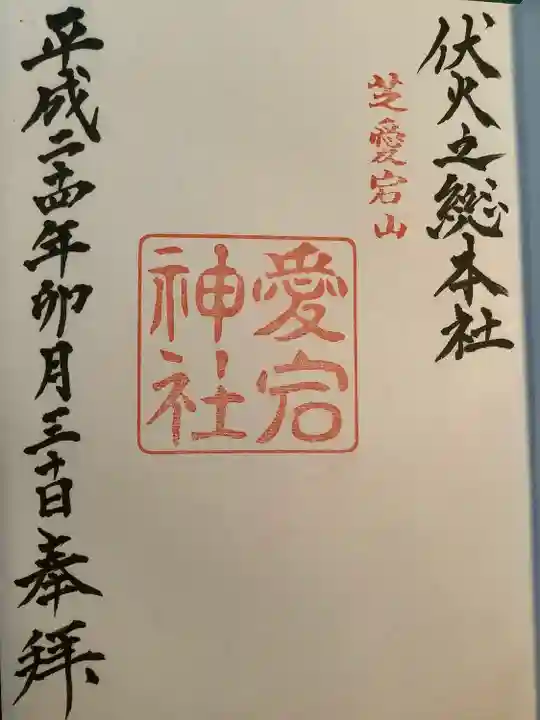 伏火之総本社
芝愛宕山
愛宕
神社
平成二十四年卯月三十日奉拜